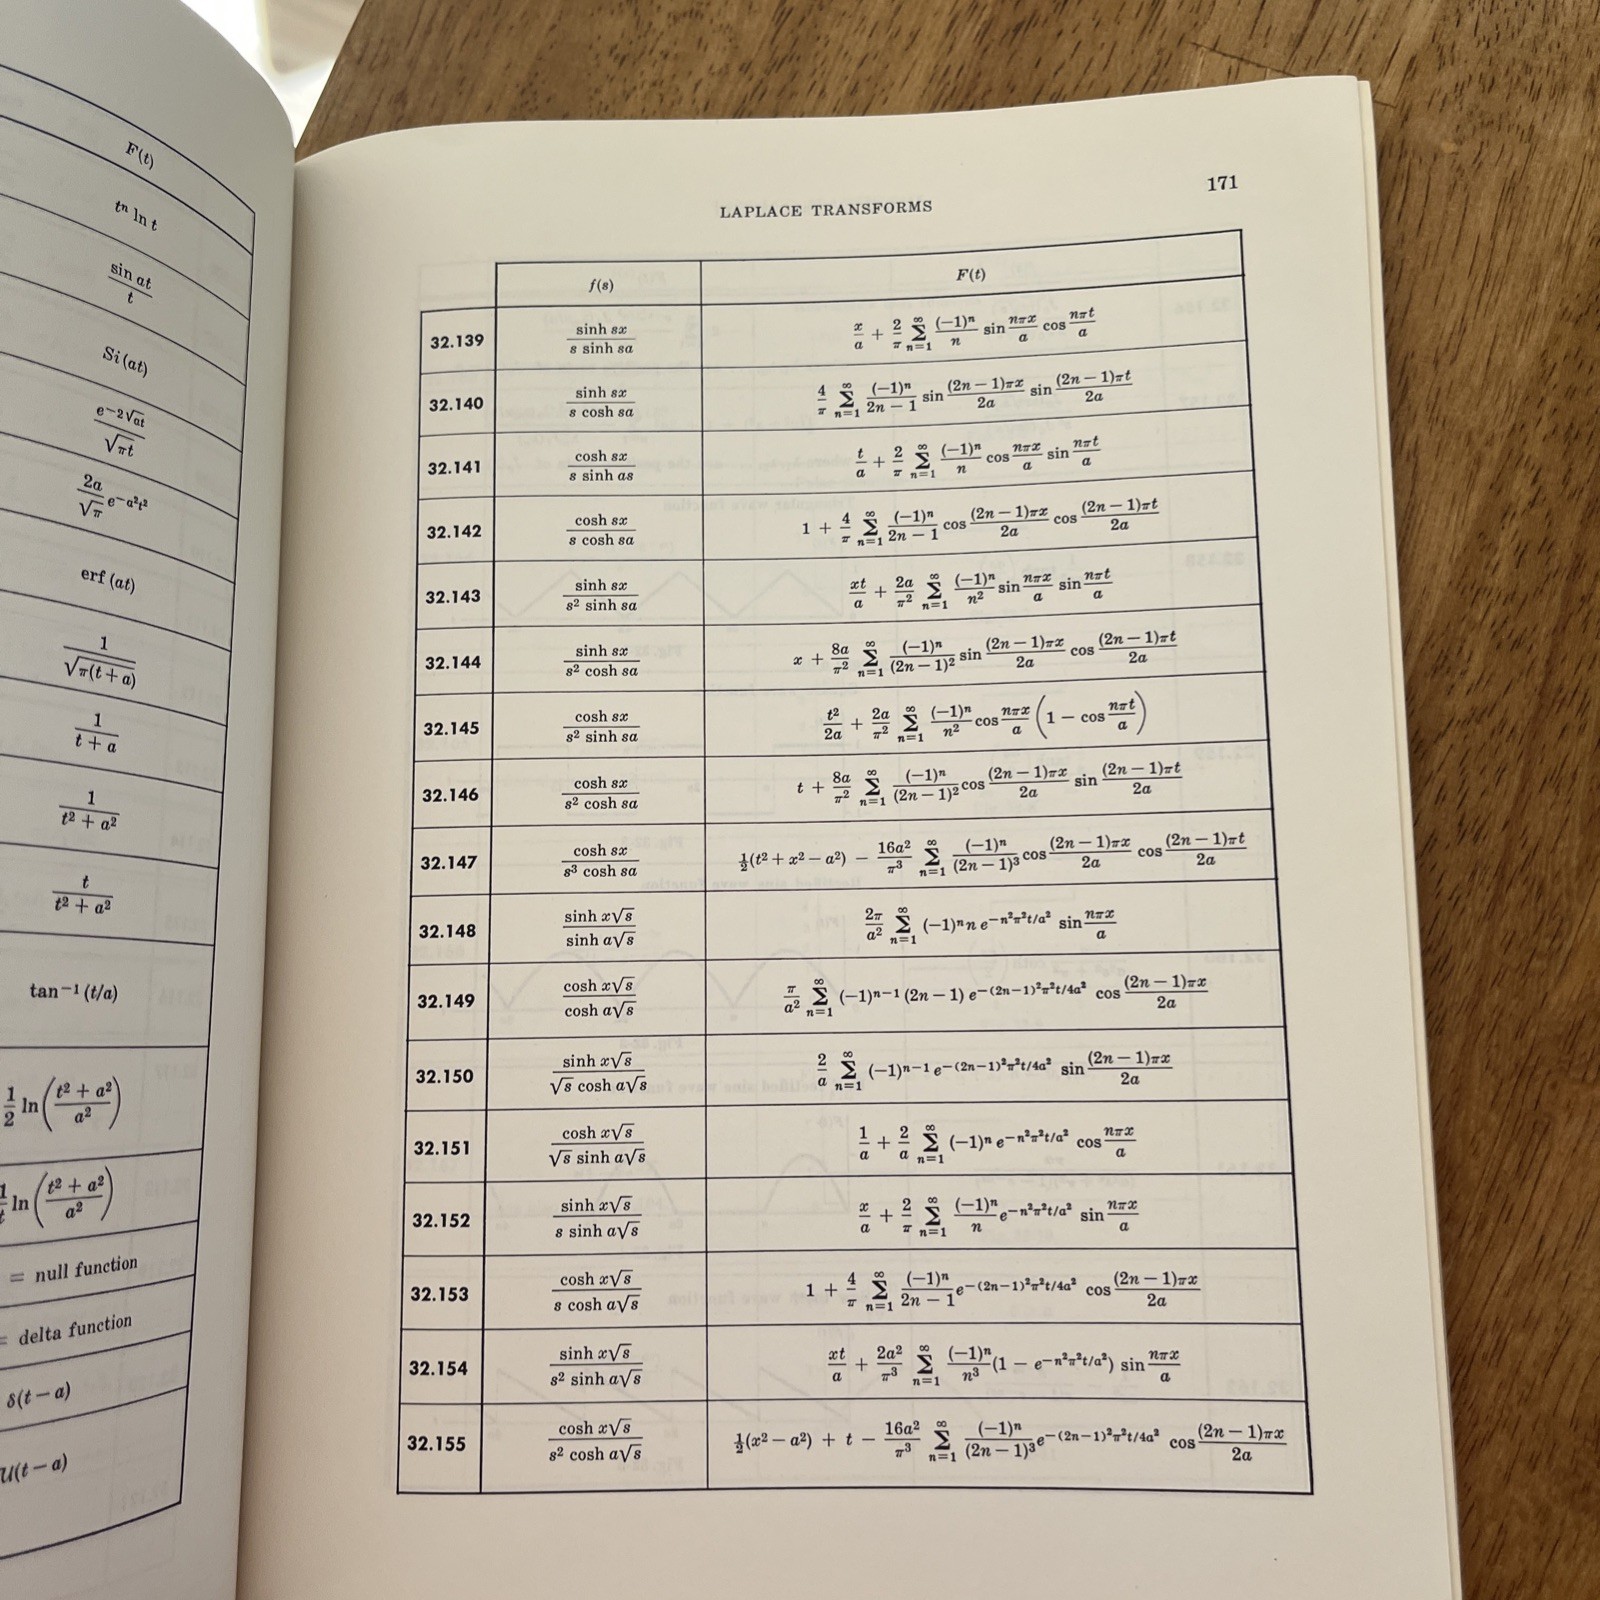 F(t)
tⁿ ln t
sin at / t
Si (at)
e^{-2√at} / √πt
2a/√π e^{-a²t²}
erf (at)
1 / √π(t + a)
1 / t + a
1 / t² + a²
t / t² + a²
tan⁻¹ (t/a)
1/2 ln((t² + a²)/a²)
1/t ln((t² + a²)/a²)
= null function
= delta function
δ(t − a)
𝒰(t − a)
171
LAPLACE TRANSFORMS
f(s) F(t)
32.139 sinh sx / s sinh sa x/a + 2/π Σ_{n=1}^∞ (−1)ⁿ/n sin nπx/a cos nπt/a
32.140 sinh sx / s cosh sa 4/π Σ_{n=1}^∞ (−1)ⁿ/(2n − 1) sin (2n − 1)πx/2a sin (2n − 1)πt/2a
32.141 cosh sx / s sinh as t/a + 2/π Σ_{n=1}^∞ (−1)ⁿ/n cos nπx/a sin nπt/a
32.142 cosh sx / s cosh sa 1 + 4/π Σ_{n=1}^∞ (−1)ⁿ/(2n − 1) cos (2n − 1)πx/2a cos (2n − 1)πt/2a
32.143 sinh sx / s² sinh sa xt/a + 2a/π² Σ_{n=1}^∞ (−1)ⁿ/n² sin nπx/a sin nπt/a
32.144 sinh sx / s² cosh sa x + 8a/π² Σ_{n=1}^∞ (−1)ⁿ/(2n − 1)² sin (2n − 1)πx/2a cos (2n − 1)πt/2a
32.145 cosh sx / s² sinh sa t²/2a + 2a/π² Σ_{n=1}^∞ (−1)ⁿ/n² cos nπx/a (1 − cos nπt/a)
32.146 cosh sx / s² cosh sa t + 8a/π² Σ_{n=1}^∞ (−1)ⁿ/(2n − 1)² cos (2n − 1)πx/2a sin (2n − 1)πt/2a
32.147 cosh sx / s³ cosh sa ½(t² + x² − a²) − 16a²/π³ Σ_{n=1}^∞ (−1)ⁿ/(2n − 1)³ cos (2n − 1)πx/2a cos (2n − 1)πt/2a
32.148 sinh x√s / sinh a√s 2π/a² Σ_{n=1}^∞ (−1)ⁿ n e^{−n²π²t/a²} sin nπx/a
32.149 cosh x√s / cosh a√s π/a² Σ_{n=1}^∞ (−1)ⁿ⁻¹ (2n − 1) e^{−(2n−1)²π²t/4a²} cos (2n − 1)πx/2a
32.150 sinh x√s / √s cosh a√s 2/a Σ_{n=1}^∞ (−1)ⁿ⁻¹ e^{−(2n−1)²π²t/4a²} sin (2n − 1)πx/2a
32.151 cosh x√s / √s sinh a√s 1/a + 2/a Σ_{n=1}^∞ (−1)ⁿ e^{−n²π²t/a²} cos nπx/a
32.152 sinh x√s / s sinh a√s x/a + 2/π Σ_{n=1}^∞ (−1)ⁿ/n e^{−n²π²t/a²} sin nπx/a
32.153 cosh x√s / s cosh a√s 1 + 4/π Σ_{n=1}^∞ (−1)ⁿ/(2n − 1) e^{−(2n−1)²π²t/4a²} cos (2n − 1)πx/2a
32.154 sinh x√s / s² sinh a√s xt/a + 2a²/π³ Σ_{n=1}^∞ (−1)ⁿ/n³ (1 − e^{−n²π²t/a²}) sin nπx/a
32.155 cosh x√s / s² cosh a√s ½(x² − a²) + t − 16a²/π³ Σ_{n=1}^∞ (−1)ⁿ/(2n − 1)³ e^{−(2n−1)²π²t/4a²} cos (2n − 1)πx/2a